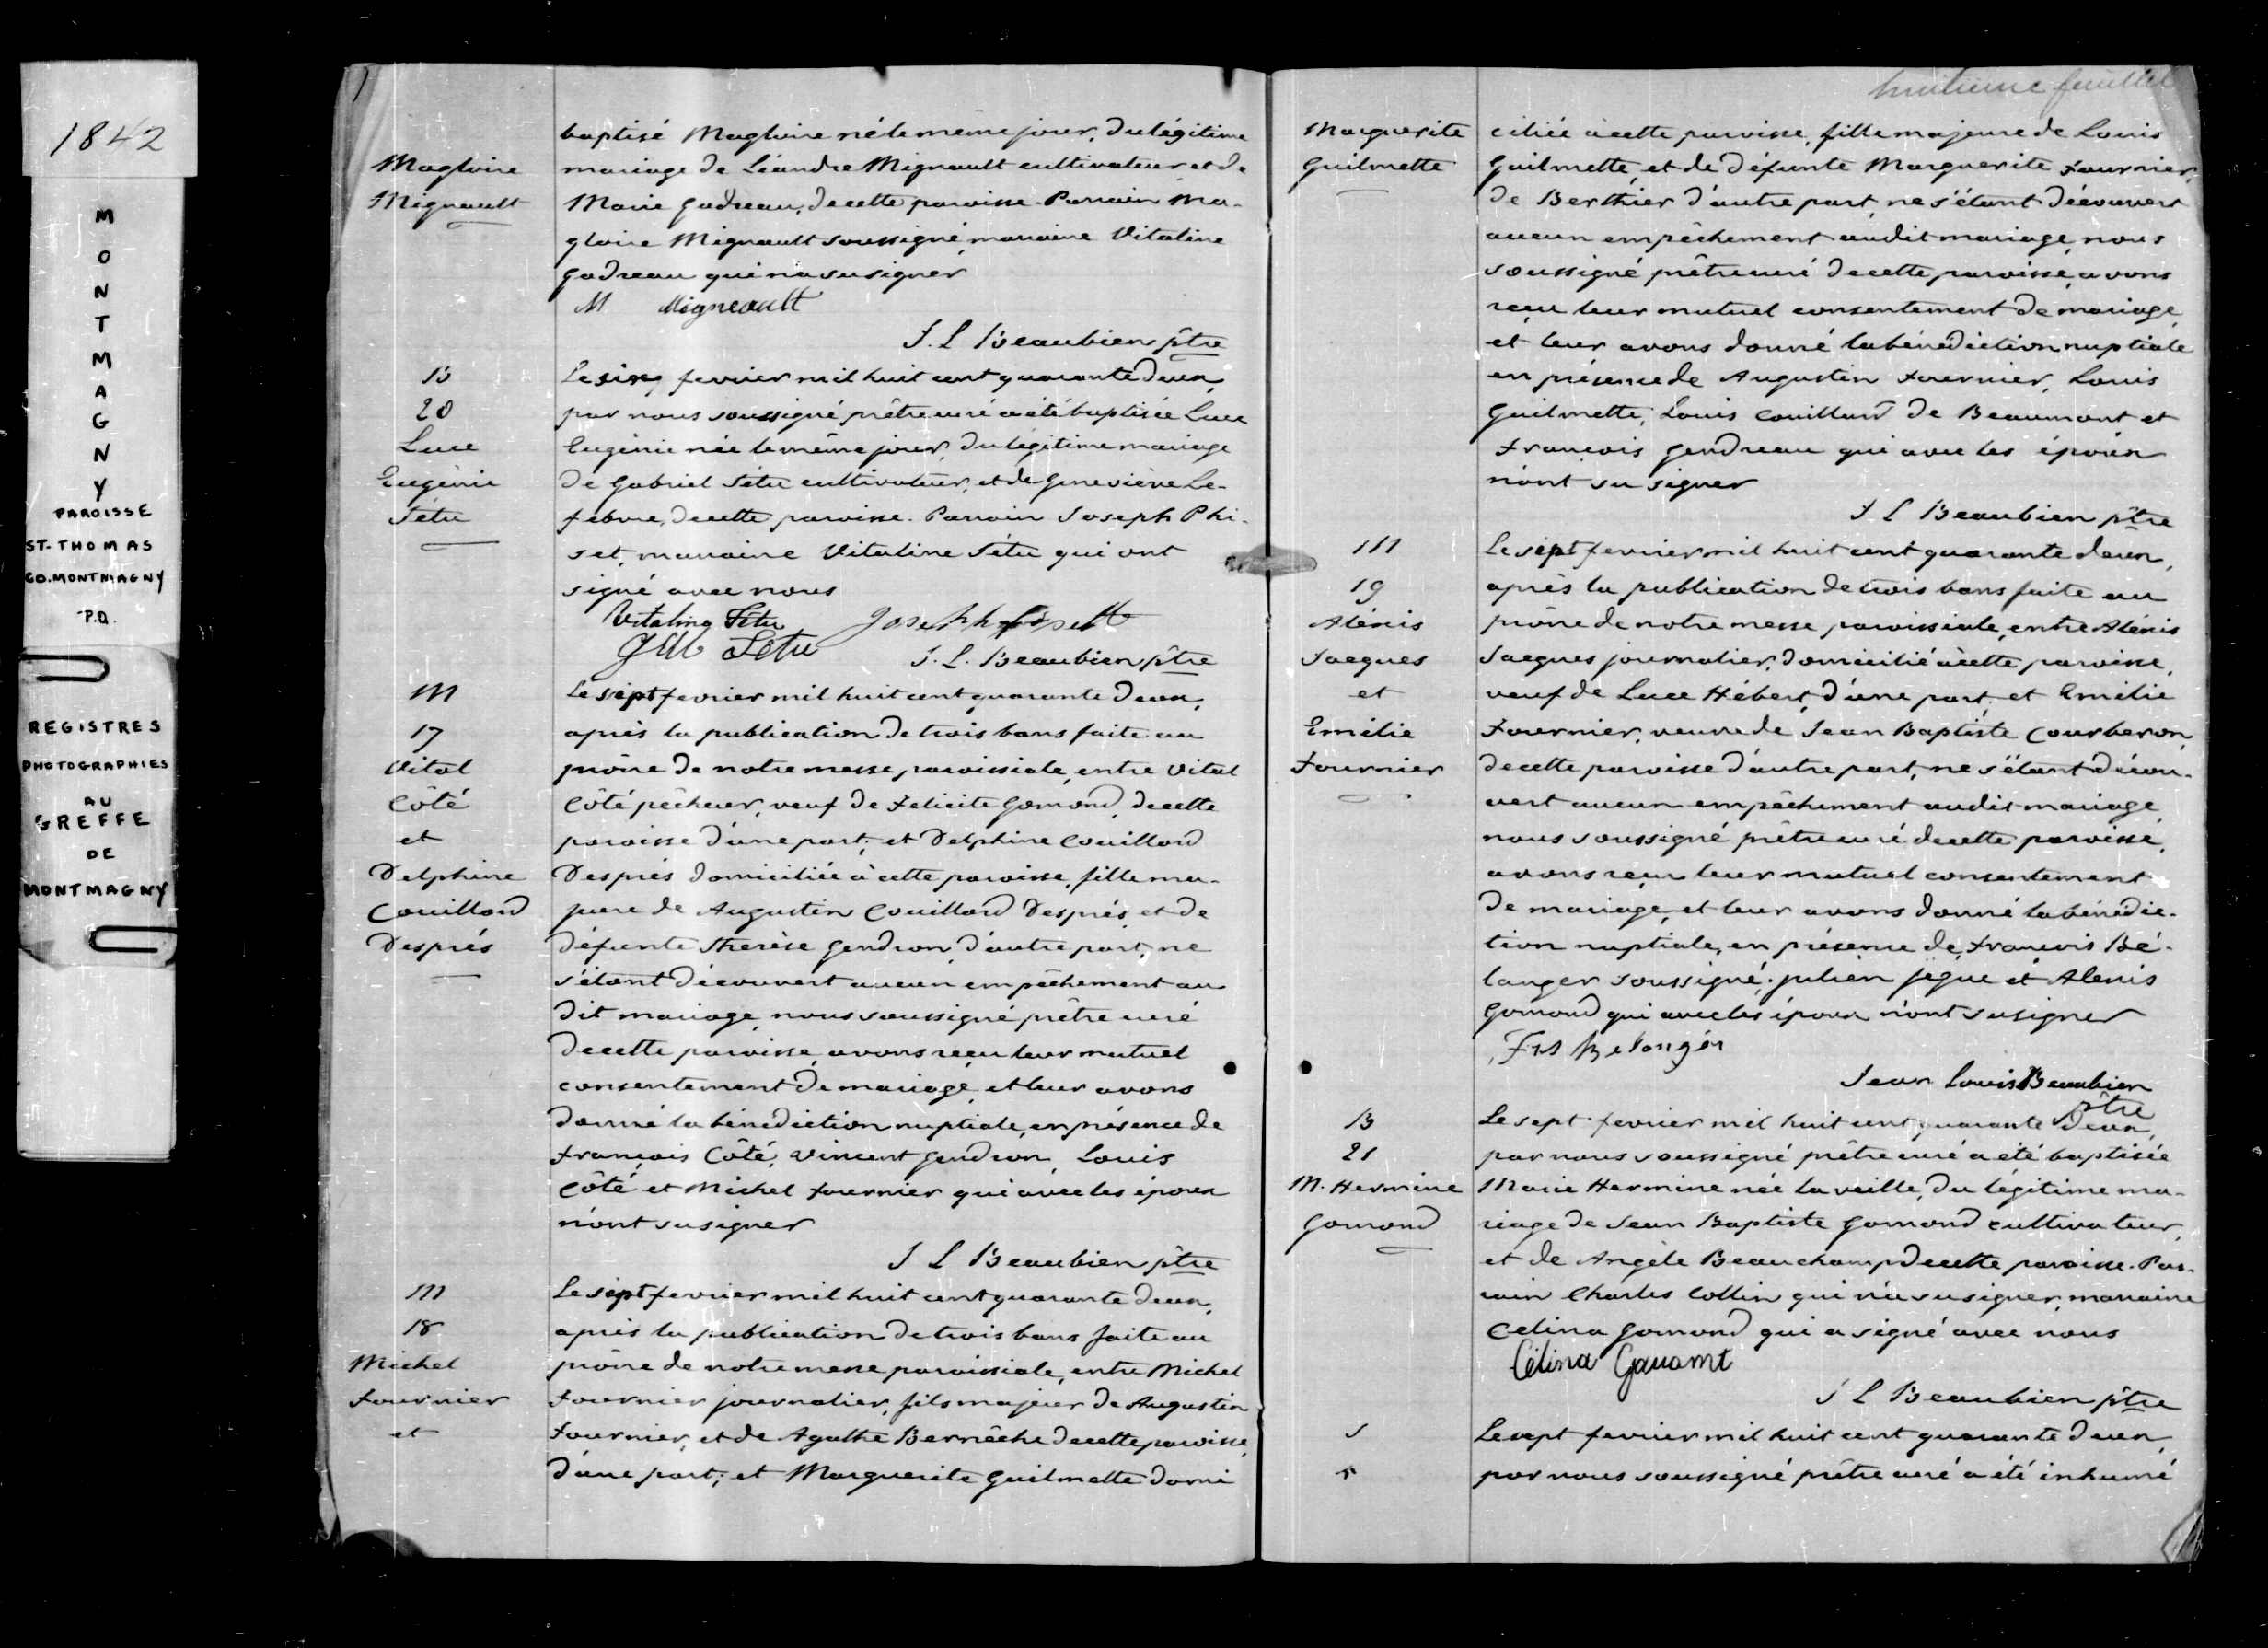 1842
M
O
N
T
M
A
G
N
Y
PAROISSE
ST-THOMAS
CO. MONTMAGNY
P.Q.
REGISTRES
PHOTOGRAPHIES
AU
GREFFE
DE
MONTMAGNY
baptisé Magloire né le même jour, du légitime
Magloire mariage de Léandre Mignault cultivateur et de
Mignault Marie Gadreau, de cette paroisse. Parrain Ma-
gloire Mignault soussigné, marraine Vitaline
Gadreau qui n'a su signer
M Migneault
J. L Beaubien ptre
B Le six fevrier mil huit cent quarante deux,
20 par nous soussigné prêtre curé a été baptisée Luce
Luce Eugénie née le même jour, du légitime mariage
Eugénie de Gabriel Tétu cultivateur, et de Geneviève Le-
Tétu febvre, de cette paroisse. Parrain Joseph Phi-
set, marraine Vitaline Tétu qui ont
signé avec nous
Vitaline Tétu Joseph
Tetu J. L. Beaubien ptre
M Le sept fevrier mil huit cent quarante deux,
17 après la publication de trois bans faite au
Vital prône de notre messe paroissiale, entre Vital
Côté Côté pêcheur, veuf de Felicite Gomond, de cette
et paroisse d'une part; et Delphine Couillard
Delphine Després domiciliée à cette paroisse, fille ma-
Couillard jeure de Augustin Couillard Després, et de
Després défunte Therèse Gendron, d'autre part, ne
s'étant découvert aucun empêchement au
dit mariage, nous soussigné prêtre curé
de cette paroisse, avons reçu leur mutuel
consentement de mariage, et leur avons
donné la bénédiction nuptiale, en présence de
François Côté, Vincent Gendron, Louis
Côté et Michel Fournier qui avec les époux
n'ont su signer
J L Beaubien ptre
M Le sept fevrier mil huit cent quarante deux,
18 après la publication de trois bans faite au
Michel prône de notre messe paroissiale, entre Michel
Fournier Fournier journalier, fils majeur de Augustin
et Fournier, et de Agathe Bernêche de cette paroisse,
d'une part; et Marguerite Guilmette domi
huitieme feuillet
Marguerite ciliée à cette paroisse, fille majeure de Louis
Guilmette Guilmette, et de défunte Marguerite Fournier,
de Berthier d'autre part, ne s'étant découvert
aucun empêchement audit mariage, nous
soussigné prêtre curé de cette paroisse, avons
reçu leur mutuel consentement de mariage,
et leur avons donné la bénédiction nuptiale
en présence de Augustin Fournier, Louis
Guilmette, Louis Couillard de Beaumont et
François Gendreau qui avec les époux
n'ont su signer
J L Beaubien ptre
M Le sept fevrier mil huit cent quarante deux,
19 après la publication de trois bans faite au
Alexis prône de notre messe paroissiale, entre Alexis
Jacques Jacques journalier, domicilié à cette paroisse,
et veuf de Luce Hébert, d'une part, et Emélie
Emélie Fournier, veuve de Jean Baptiste Courberon,
Fournier de cette paroisse d'autre part, ne s'étant décou-
vert aucun empêchement audit mariage,
nous soussigné prêtre curé de cette paroisse,
avons reçu leur mutuel consentement
de mariage, et leur avons donné la bénédic-
tion nuptiale, en présence de François Bé-
langer soussigné, Julien et Alexis
Gomond qui avec les époux n'ont su signer
Frs Belanger
Jean Louis Beaubien
ptre
B Le sept fevrier mil huit cent quarante deux,
21 par nous soussigné prêtre curé a été baptisée
M. Hermine Marie Hermine née la veille, du légitime ma-
Gomond riage de Jean Baptiste Gomond cultivateur,
et de Angèle Beauchamp de cette paroisse. Par-
rain Charles Collin qui n'a su signer, marraine
Celina Gomond qui a signé avec nous
Célina Gauamt
J L Beaubien ptre
S Le sept fevrier mil huit cent quarante deux,
par nous soussigné prêtre curé a été inhumé